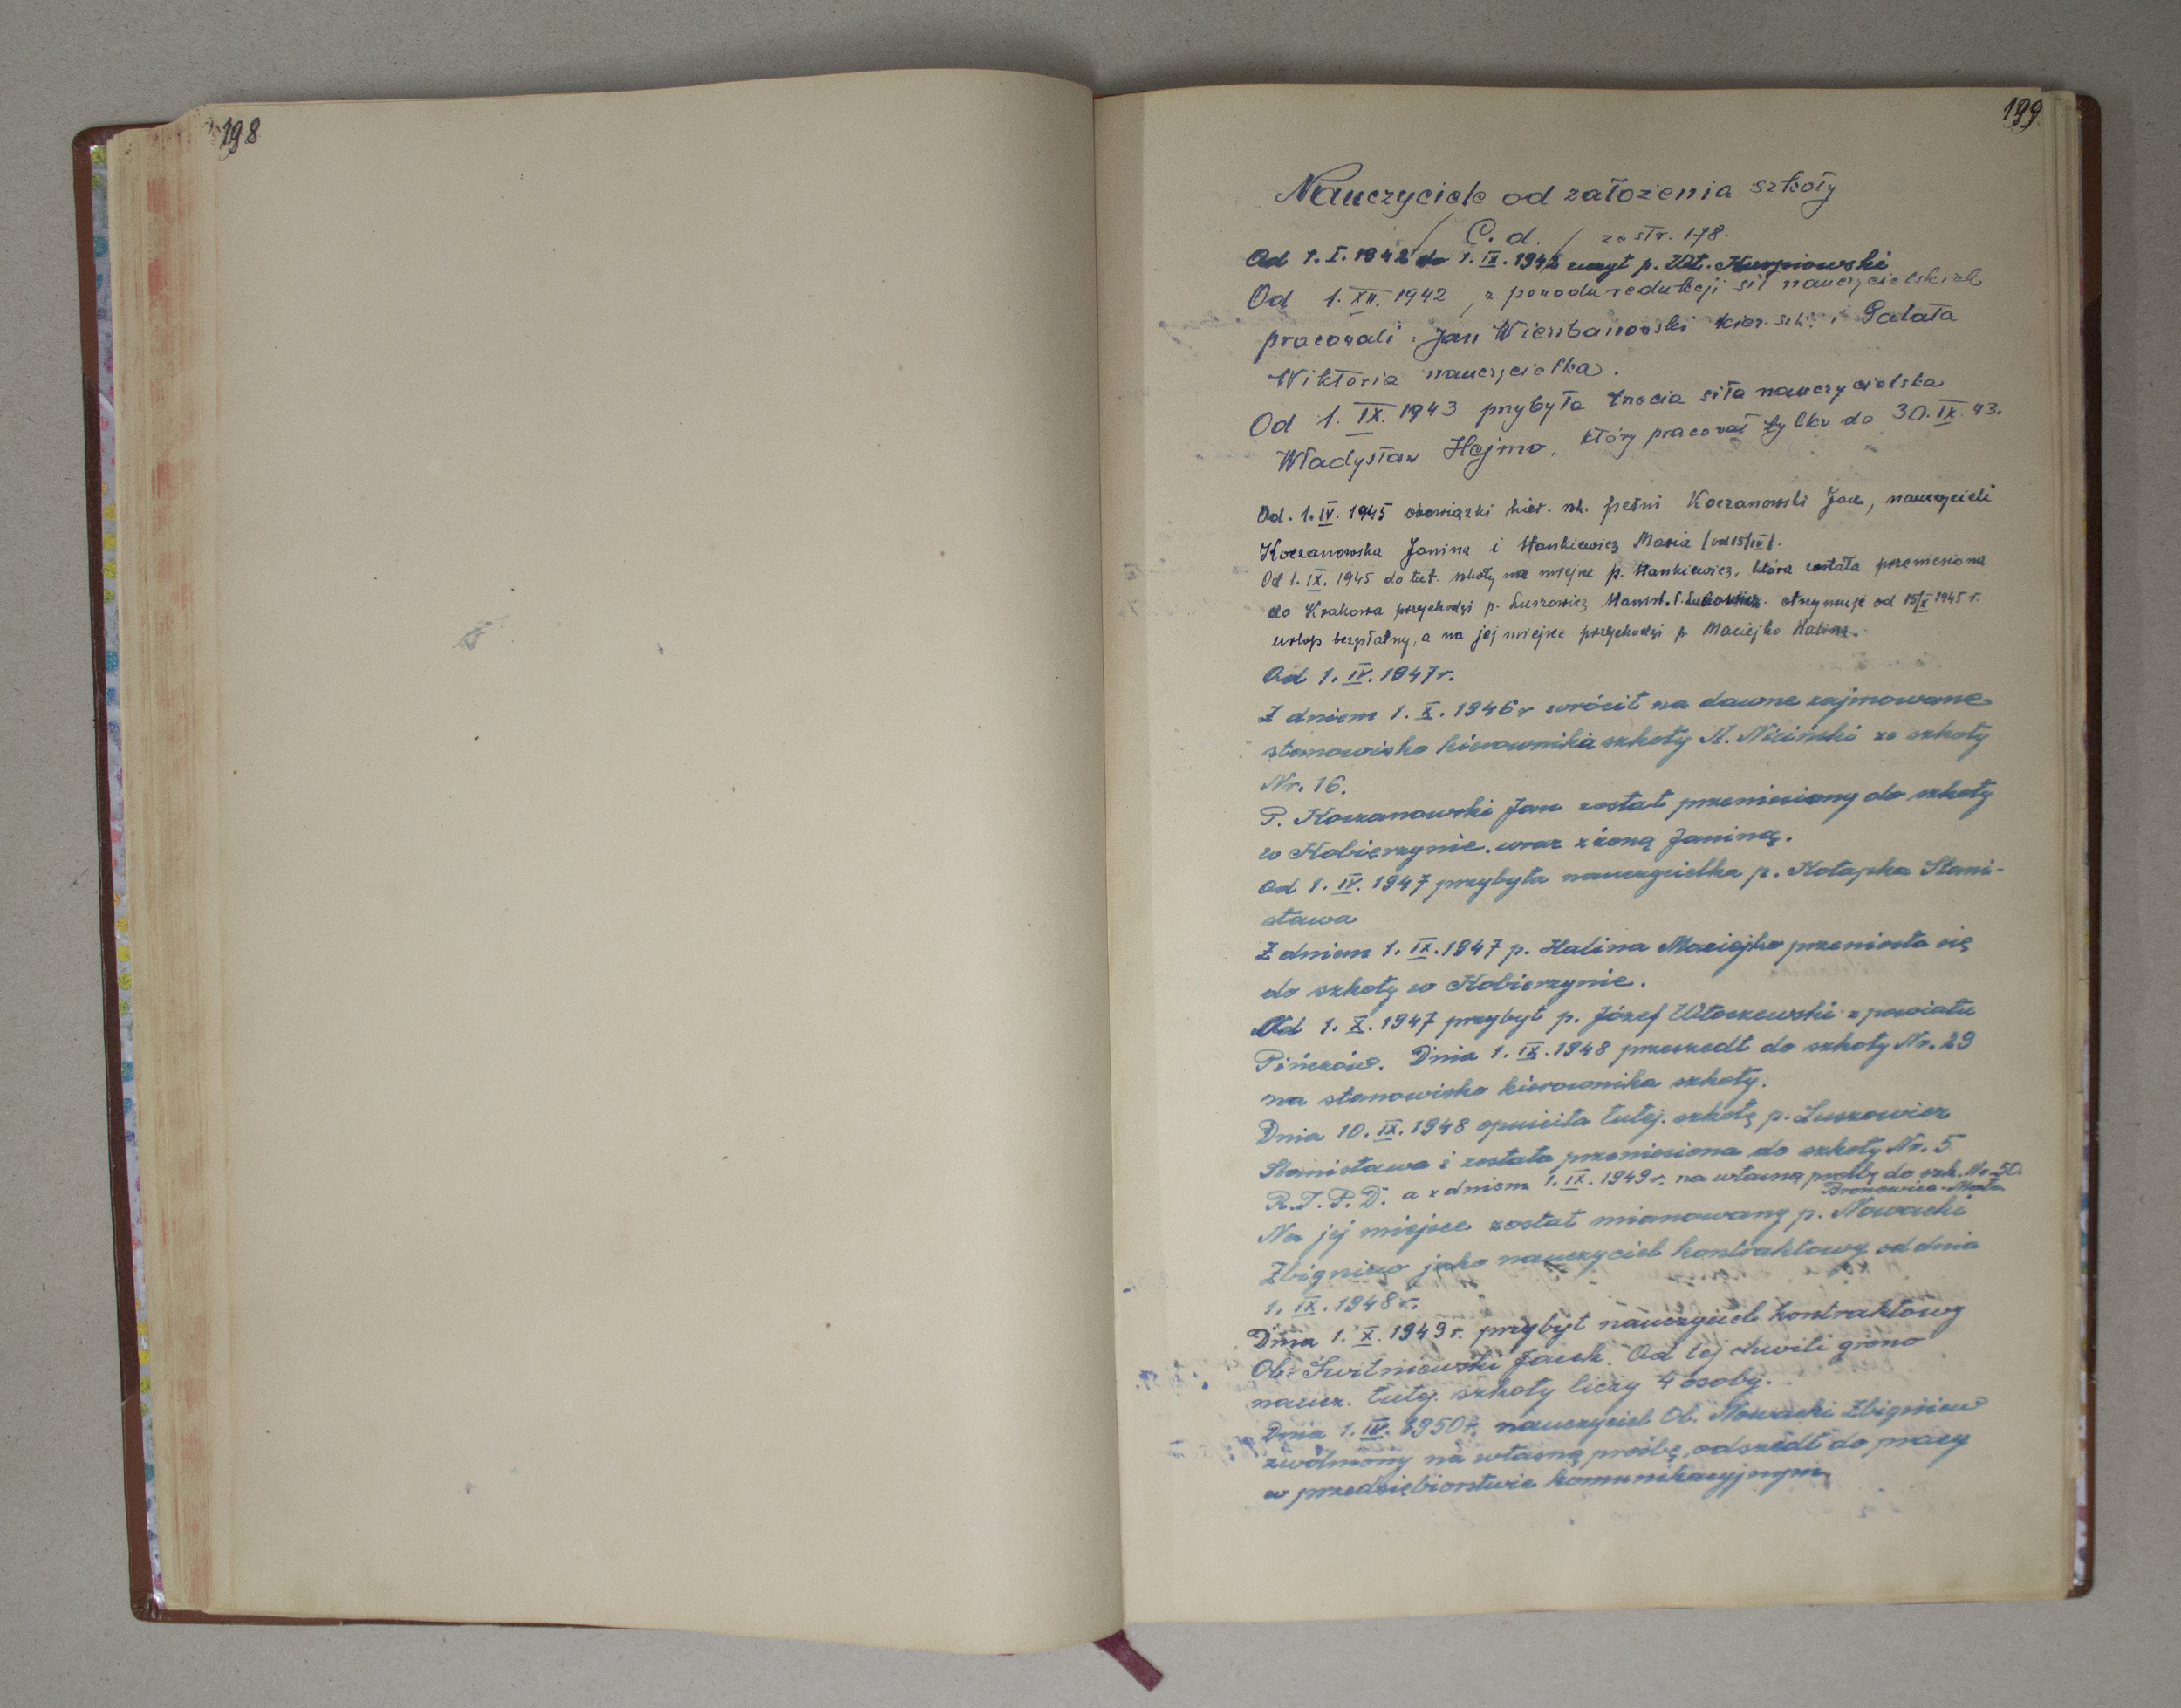 198
199
Nauczyciele od założenia szkoły
/ C. d. / ze str. 178.
Od 1. I. 1942 do 1. IX. 1942 uczył p. Wł. Kurpiowski
Od 1. XII. 1942, z powodu redukcji sił nauczycielskich
pracowali: Jan Wierzbanowski kier. szk. i Pałata
Wiktoria nauczycielka.
Od 1. IX. 1943 przybyła trzecia siła nauczycielska
Władysław Hejmo, który pracował tylko do 30. IX. 43.
Od. 1. IV. 1945 obowiązki kier. szk. pełni Koczanowski Jan, nauczycieli
Koczanowska Janina i Stankiewicz Maria /od 15/IV/.
Od 1. IX. 1945 do tut. szkoły na miejsce p. Stankiewicz, która została przeniesiona
do Krakowa przychodzi p. Luszowicz Stanisł. P. otrzymuje od 15/X 1945 r.
urlop bezpłatny, a na jej miejsce przychodzi p. Maciejko Halina.
Od 1. IV. 1947r.
Z dniem 1. X. 1946r wrócił na dawne zajmowane
stanowisko kierownika szkoły St. Niciński ze szkoły
Nr. 16.
P. Koczanowski Jan został przeniesiony do szkoły
w Kobierzynie. wraz z żoną Janiną.
Od 1. IV. 1947 przybyła nauczycielka p. Kotapka Stani-
sława
Z dniem 1. IX. 1947 p. Halina Maciejko przeniosła się
do szkoły w Kobierzynie.
Od 1. X. 1947 przybył p. Józef Włoszewski z powiatu
Pińczów. Dnia 1. IX. 1948 przeszedł do szkoły Nr. 29
na stanowisko kierownika szkoły.
Dnia 10. IX. 1948 opuściła tutej. szkołę p. Luszowicz
Stanisława i została przeniesiona do szkoły Nr. 5
R.T.P.D. a z dniem 1. IX. 1949r. na własną prośbę do szk. Nr. 50
Bronowice-Małe
Na jej miejsce został mianowany p. Nowacki
Zbigniew jako nauczyciel kontraktowy od dnia
1. IX. 1948 r.
Dnia 1. X. 1949 r. przybył nauczyciel kontraktowy
Ob. Świtniewski Jacek. Od tej chwili grono
naucz. tutej. szkoły liczy 4 osoby.
Dnia 1. IV. 1950 r. nauczyciel Ob. Nowacki Zbigniew
zwolniony na własną prośbę, odszedł do pracy
w przedsiębiorstwie komunikacyjnym.